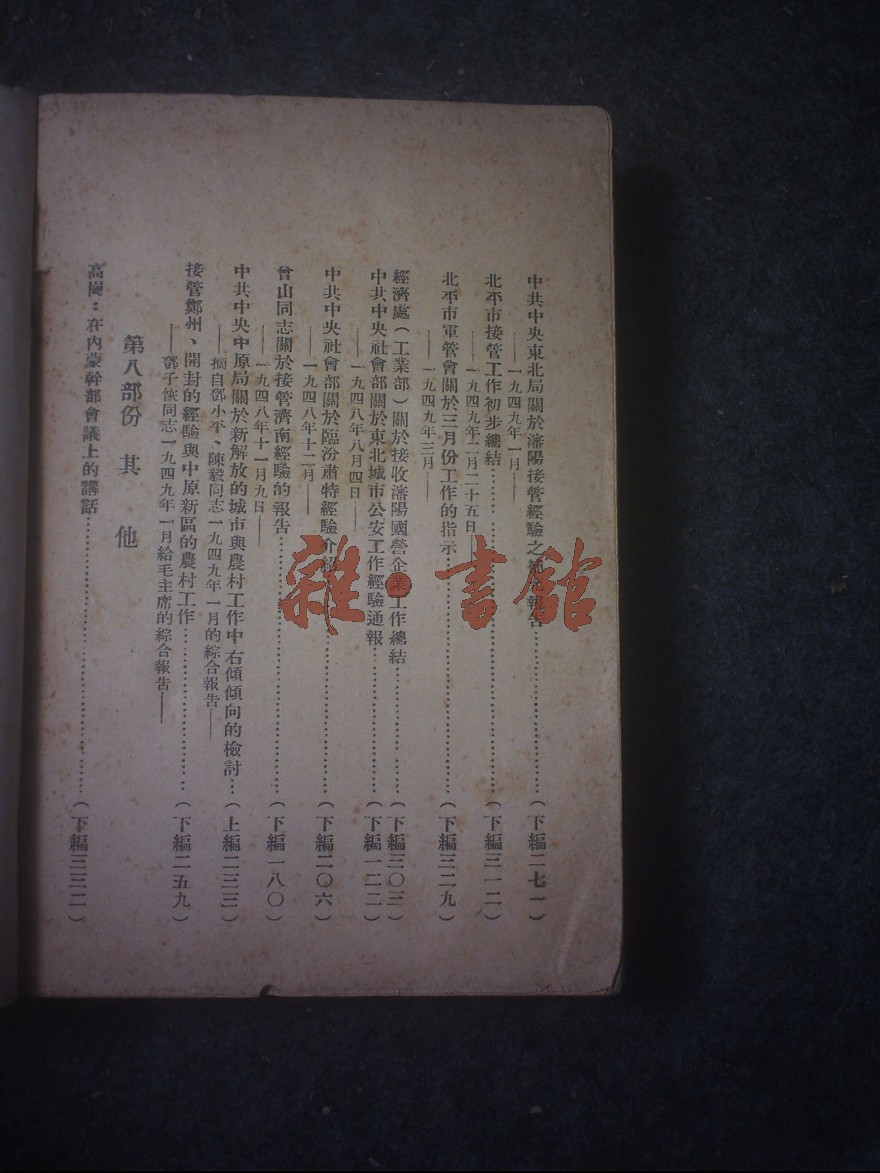 中共中央東北局關於瀋陽接管經驗之補充報告……(下編二七一)
——一九四九年一月——
北平市接管工作初步總結……(下編三一二)
——一九四九年二月二十五日——
北平市軍管會關於三月份工作的指示……(下編三二九)
——一九四九年三月——
經濟處(工業部)關於接收瀋陽國營企業工作總結……(下編三〇三)
中共中央社會部關於東北城市公安工作經驗通報……(下編一二二)
——一九四八年八月四日——
中共中央社會部關於臨汾肅特經驗介紹……(下編二〇六)
——一九四八年十二月——
曾山同志關於接管濟南經驗的報告……(下編一八〇)
——一九四八年十一月九日——
中共中央中原局關於新解放的城市與農村工作中右傾傾向的檢討…(上編二三三)
——摘自鄧小平、陳毅同志一九四九年一月的綜合報告——
接管鄭州、開封的經驗與中原新區的農村工作……(下編二五九)
——鄧子恢同志一九四九年一月給毛主席的綜合報告——
第八部份 其他
高崗:在內蒙幹部會議上的講話……(下編三三二)
雜·書館